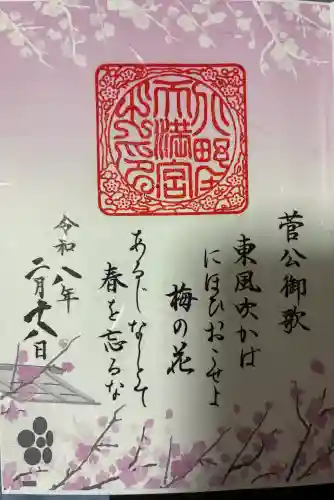 菅公御歌
東風吹かは
にほひおこせよ
梅の花
あるじなしとて
春を忘るな
令和八年
二月十八日
北野天満宮